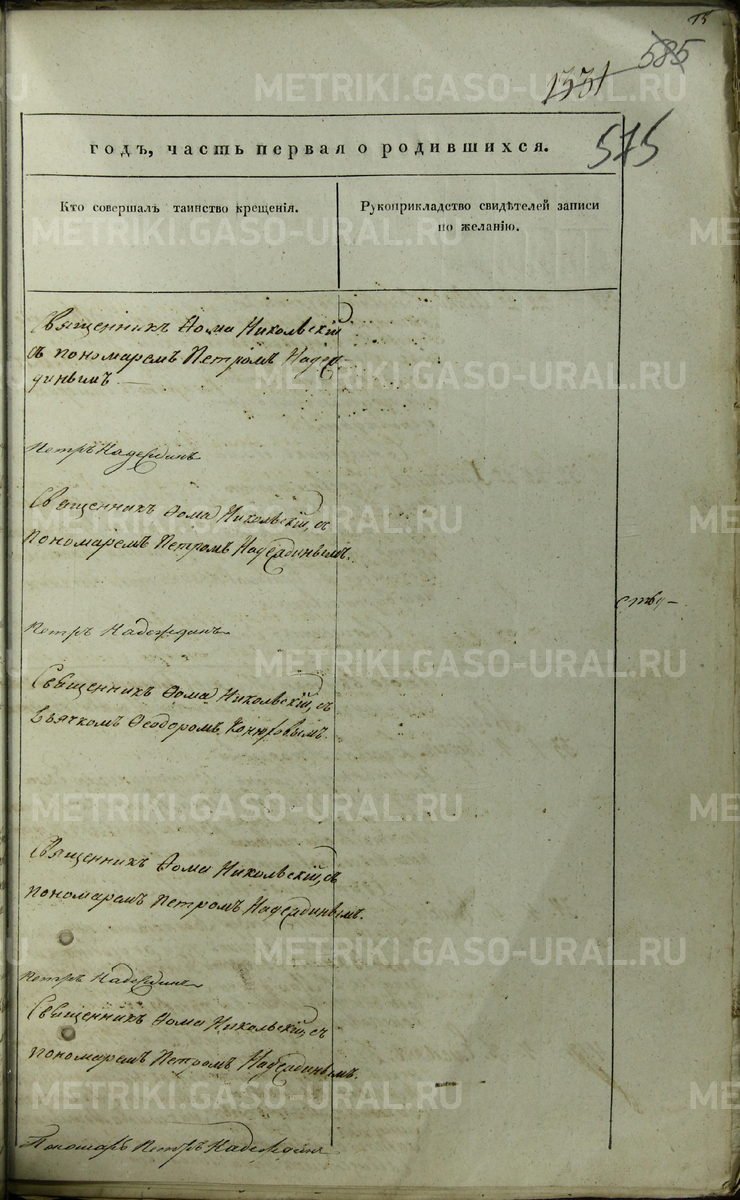 15
585
1331
575
годъ, часть первая о родившихся.
Кто совершалъ таинство крещенія.
Рукоприкладство свидѣтелей записи
по желанію.
Священникъ Ѳома Никольскій
съ пономаремъ Петромъ Надеж-
динымъ
Петръ Надеждинъ
Священникъ Ѳома Никольскій, съ
пономаремъ Петромъ Надеждинымъ.
Петръ Надеждинъ
Священникъ Ѳома Никольскій, съ
дьячкомъ Ѳеодоромъ
Священникъ Ѳома Никольскій, съ
пономаремъ Петромъ Надеждинымъ.
Петръ Надеждинъ
Священникъ Ѳома Никольскій, съ
пономаремъ Петромъ Надеждинымъ.
Пономарь Петръ Надеждинъ
METRIKI.GASO-URAL.RU